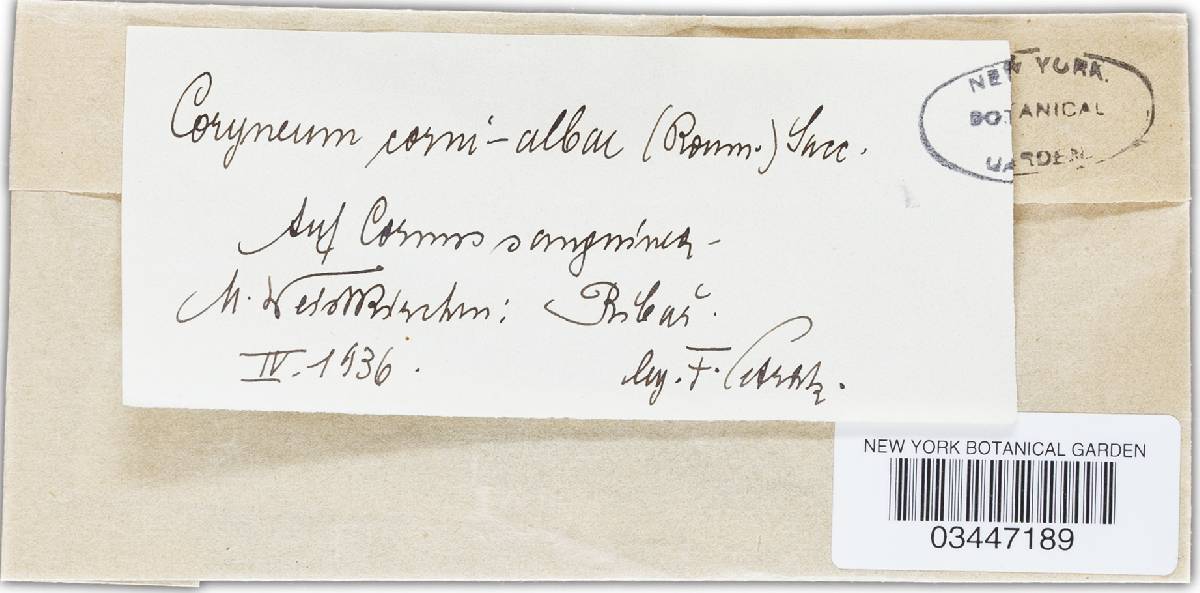 Coryneum corni-albae (Roum.) Sacc.
Auf Cornus sanguinea -
M. Weisskirchen: Ribář.
IV. 1936. leg. F. Petrak.
NEW YORK
BOTANICAL
GARDEN
NEW YORK BOTANICAL GARDEN
03447189